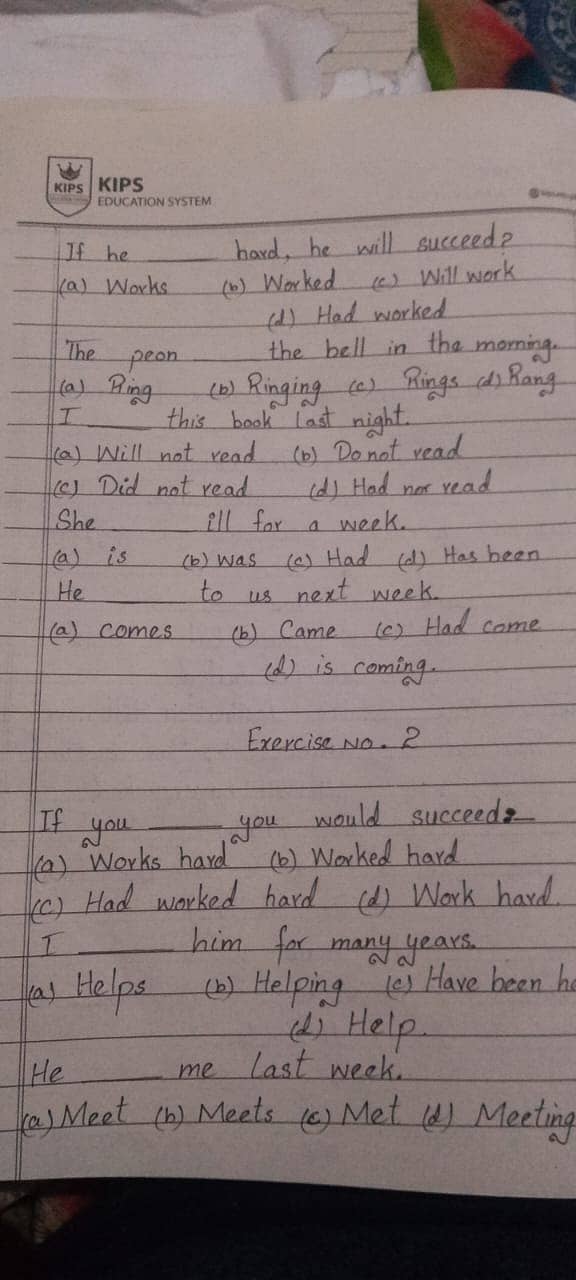 KIPS KIPS
EDUCATION SYSTEM
If he ______ hard, he will succeed?
(a) Works (b) Worked (c) Will work
(d) Had worked
The peon ______ the bell in the morning.
(a) Ring (b) Ringing (c) Rings (d) Rang
I ______ this book last night.
(a) Will not read (b) Do not read
(c) Did not read (d) Had not read
She ______ ill for a week.
(a) is (b) was (c) Had (d) Has been
He ______ to us next week.
(a) comes (b) Came (c) Had come
(d) is coming.
Exercise No. 2
If you ______ you would succeed?
(a) Works hard (b) Worked hard
(c) Had worked hard (d) Work hard.
I ______ him for many years.
(a) Helps (b) Helping (c) Have been he
(d) Help.
He ______ me last week.
(a) Meet (b) Meets (c) Met (d) Meeting